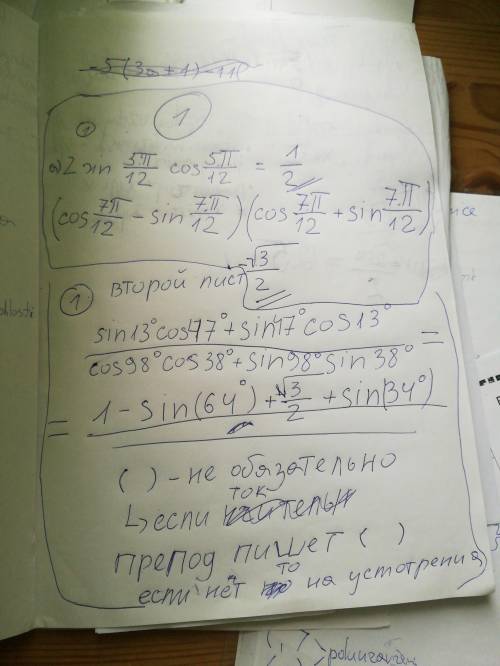 -5(30+1)-11(
1
1
a) 2 sin 5π/12 cos 5π/12 = 1/2
(cos 7π/12 - sin 7π/12)(cos 7π/12 + sin 7π/12)
-√3/2
1 второй лист
sin13°cos47°+sin47°cos13°
cos98°cos38°+sin98°sin38° =
= 1-sin(64°)+√3/2+sin(34°)
( ) - не обязательно
ток
↳если
препод пишет ( )
то
если нет на усмотрения